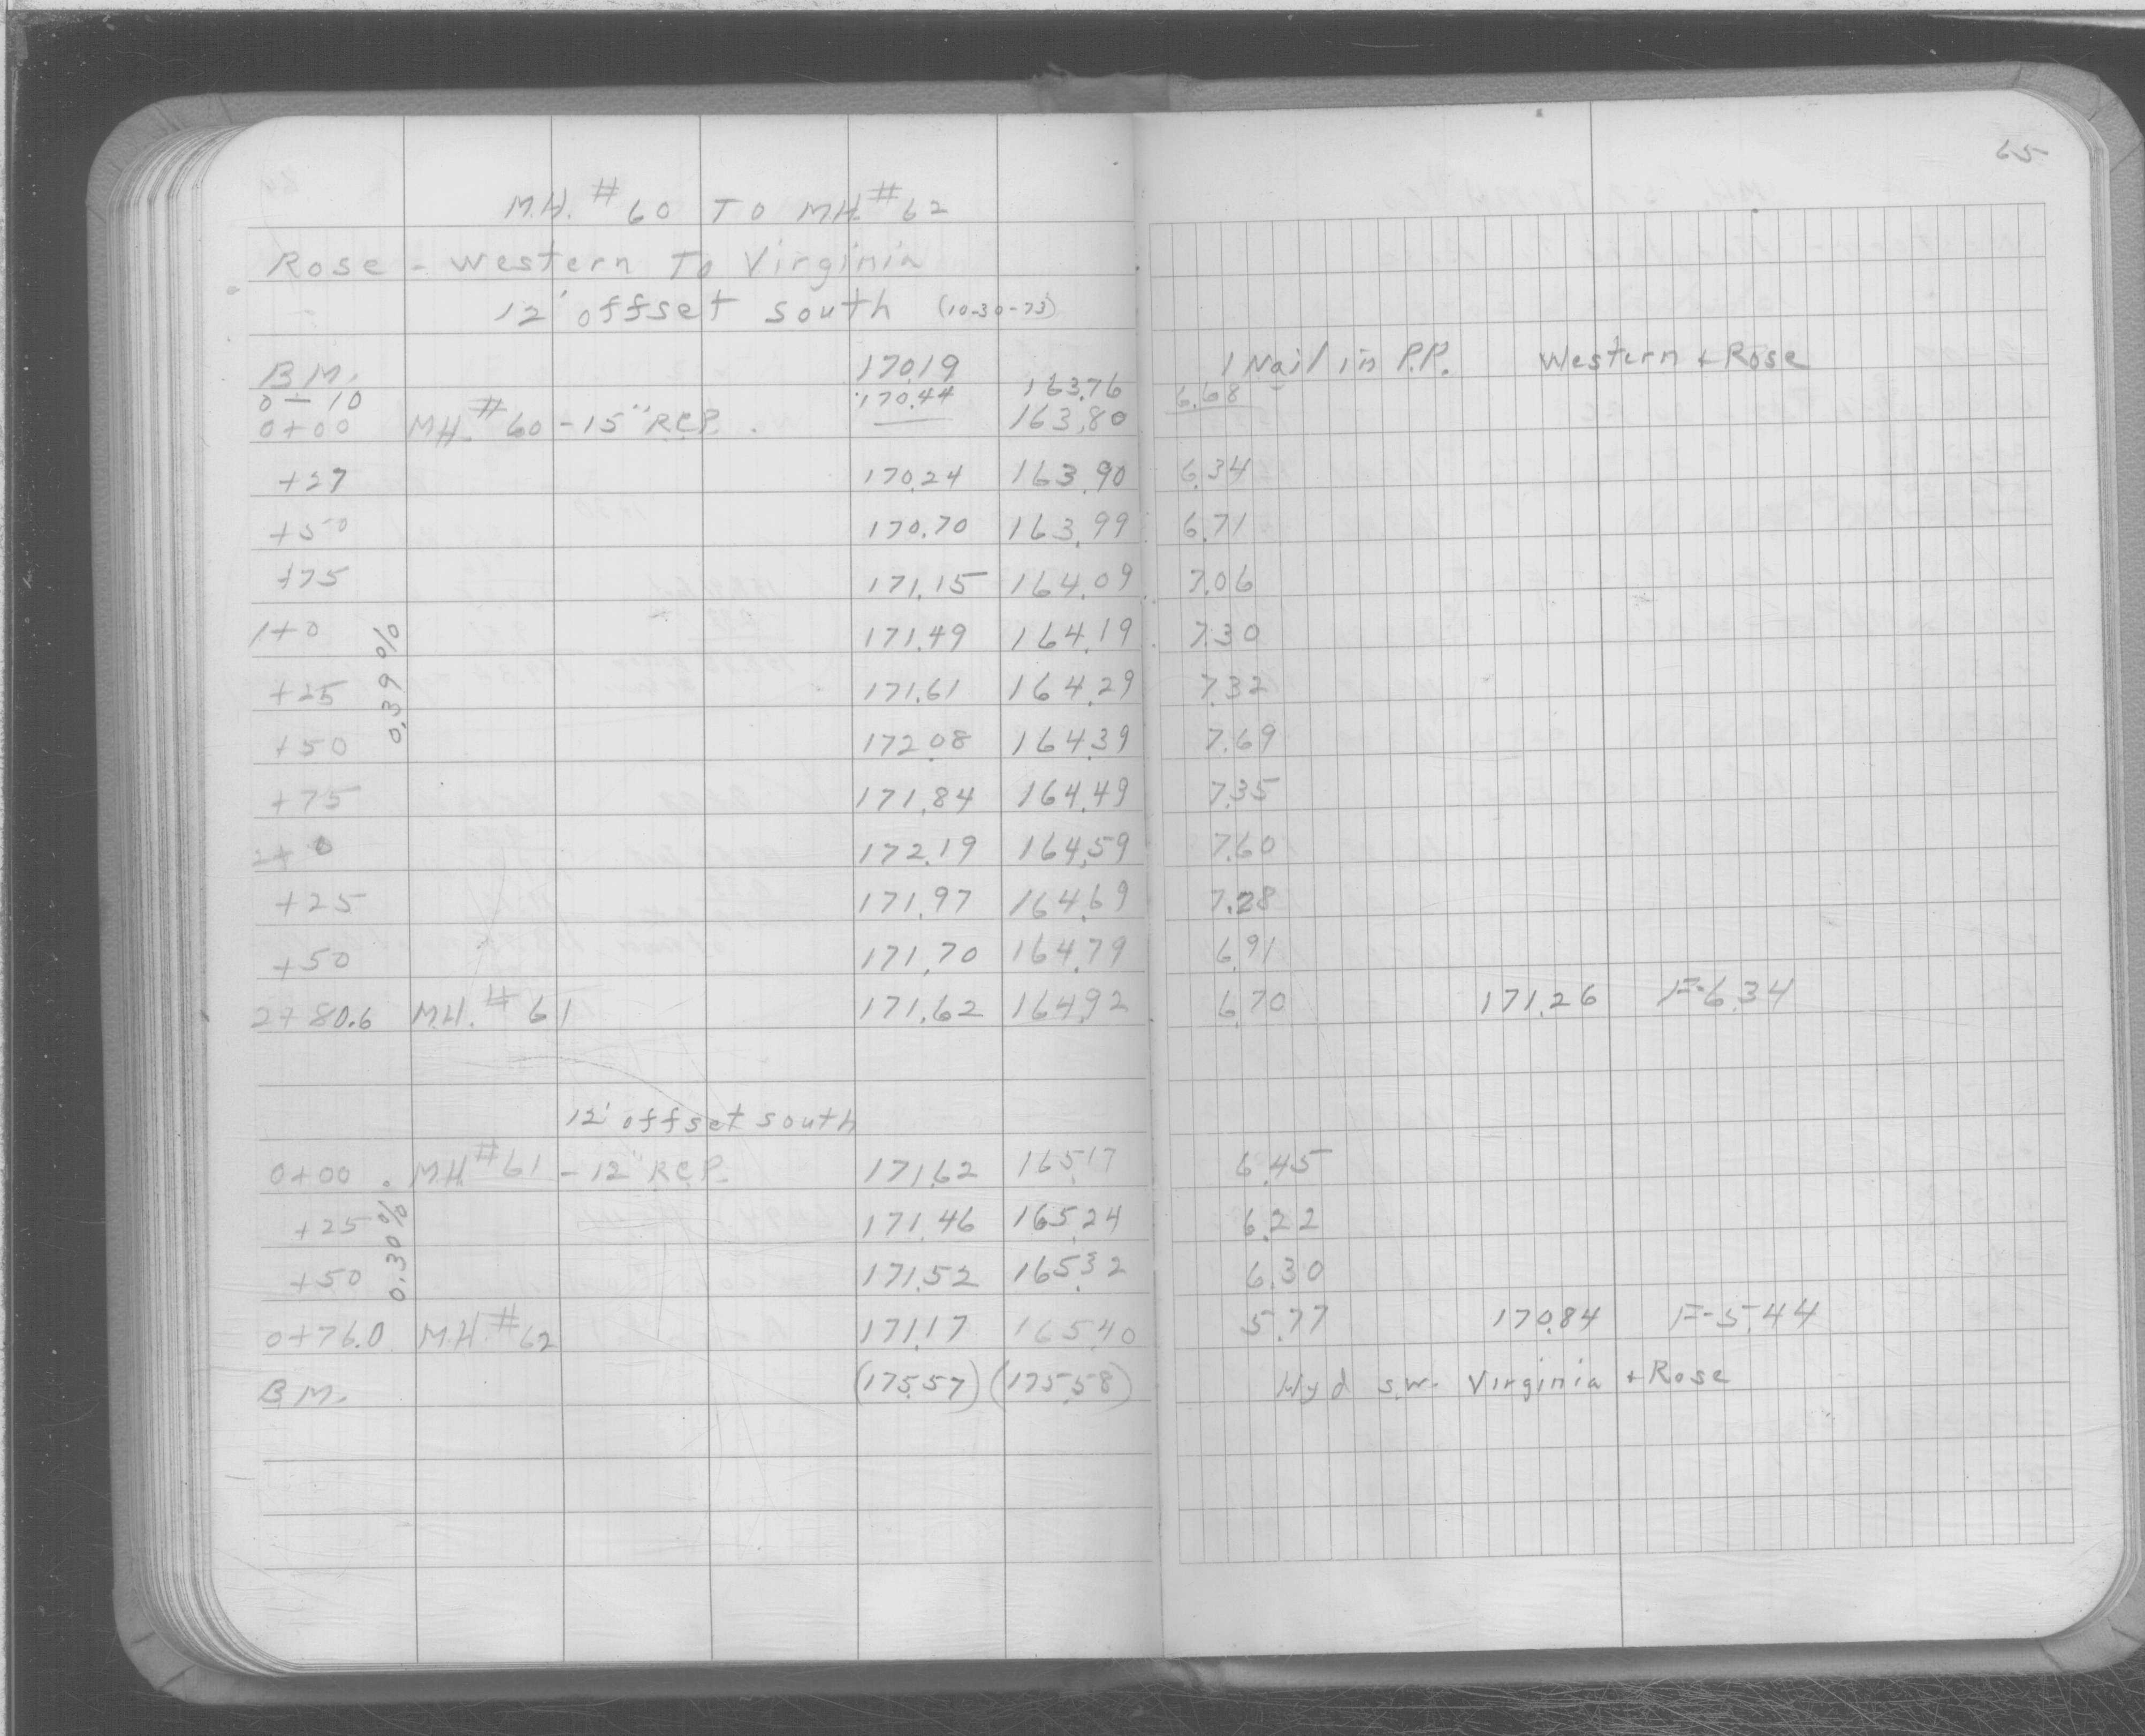 65
M.H. #60 TO M.H. #62
Rose - Western To Virginia
12' offset south (10-30-73)
B.M. 170.19 1 Nail in P.P. Western + Rose
0-10 170.44 163.76 6.68
0+00 M.H. #60 - 15" R.C.P. — 163.80
+27 170.24 163.90 6.34
+50 170.70 163.99 6.71
+75 171.15 164.09 7.06
1+0 171.49 164.19 7.30
0.39 %
+25 171.61 164.29 7.32
+50 172.08 164.39 7.69
+75 171.84 164.49 7.35
2+0 172.19 164.59 7.60
+25 171.97 164.69 7.28
+50 171.70 164.79 6.91
2+80.6 M.H. #61 171.62 164.92 6.70 171.26 F-6.34
12' offset south
0+00 M.H. #61 - 12" R.C.P. 171.62 165.17 6.45
+25 171.46 165.24 6.22
0.30 %
+50 171.52 165.32 6.30
0+76.0 M.H. #62 171.17 165.40 5.77 170.84 F-5.44
B.M. (175.57) (175.58) Hyd s.w. Virginia + Rose